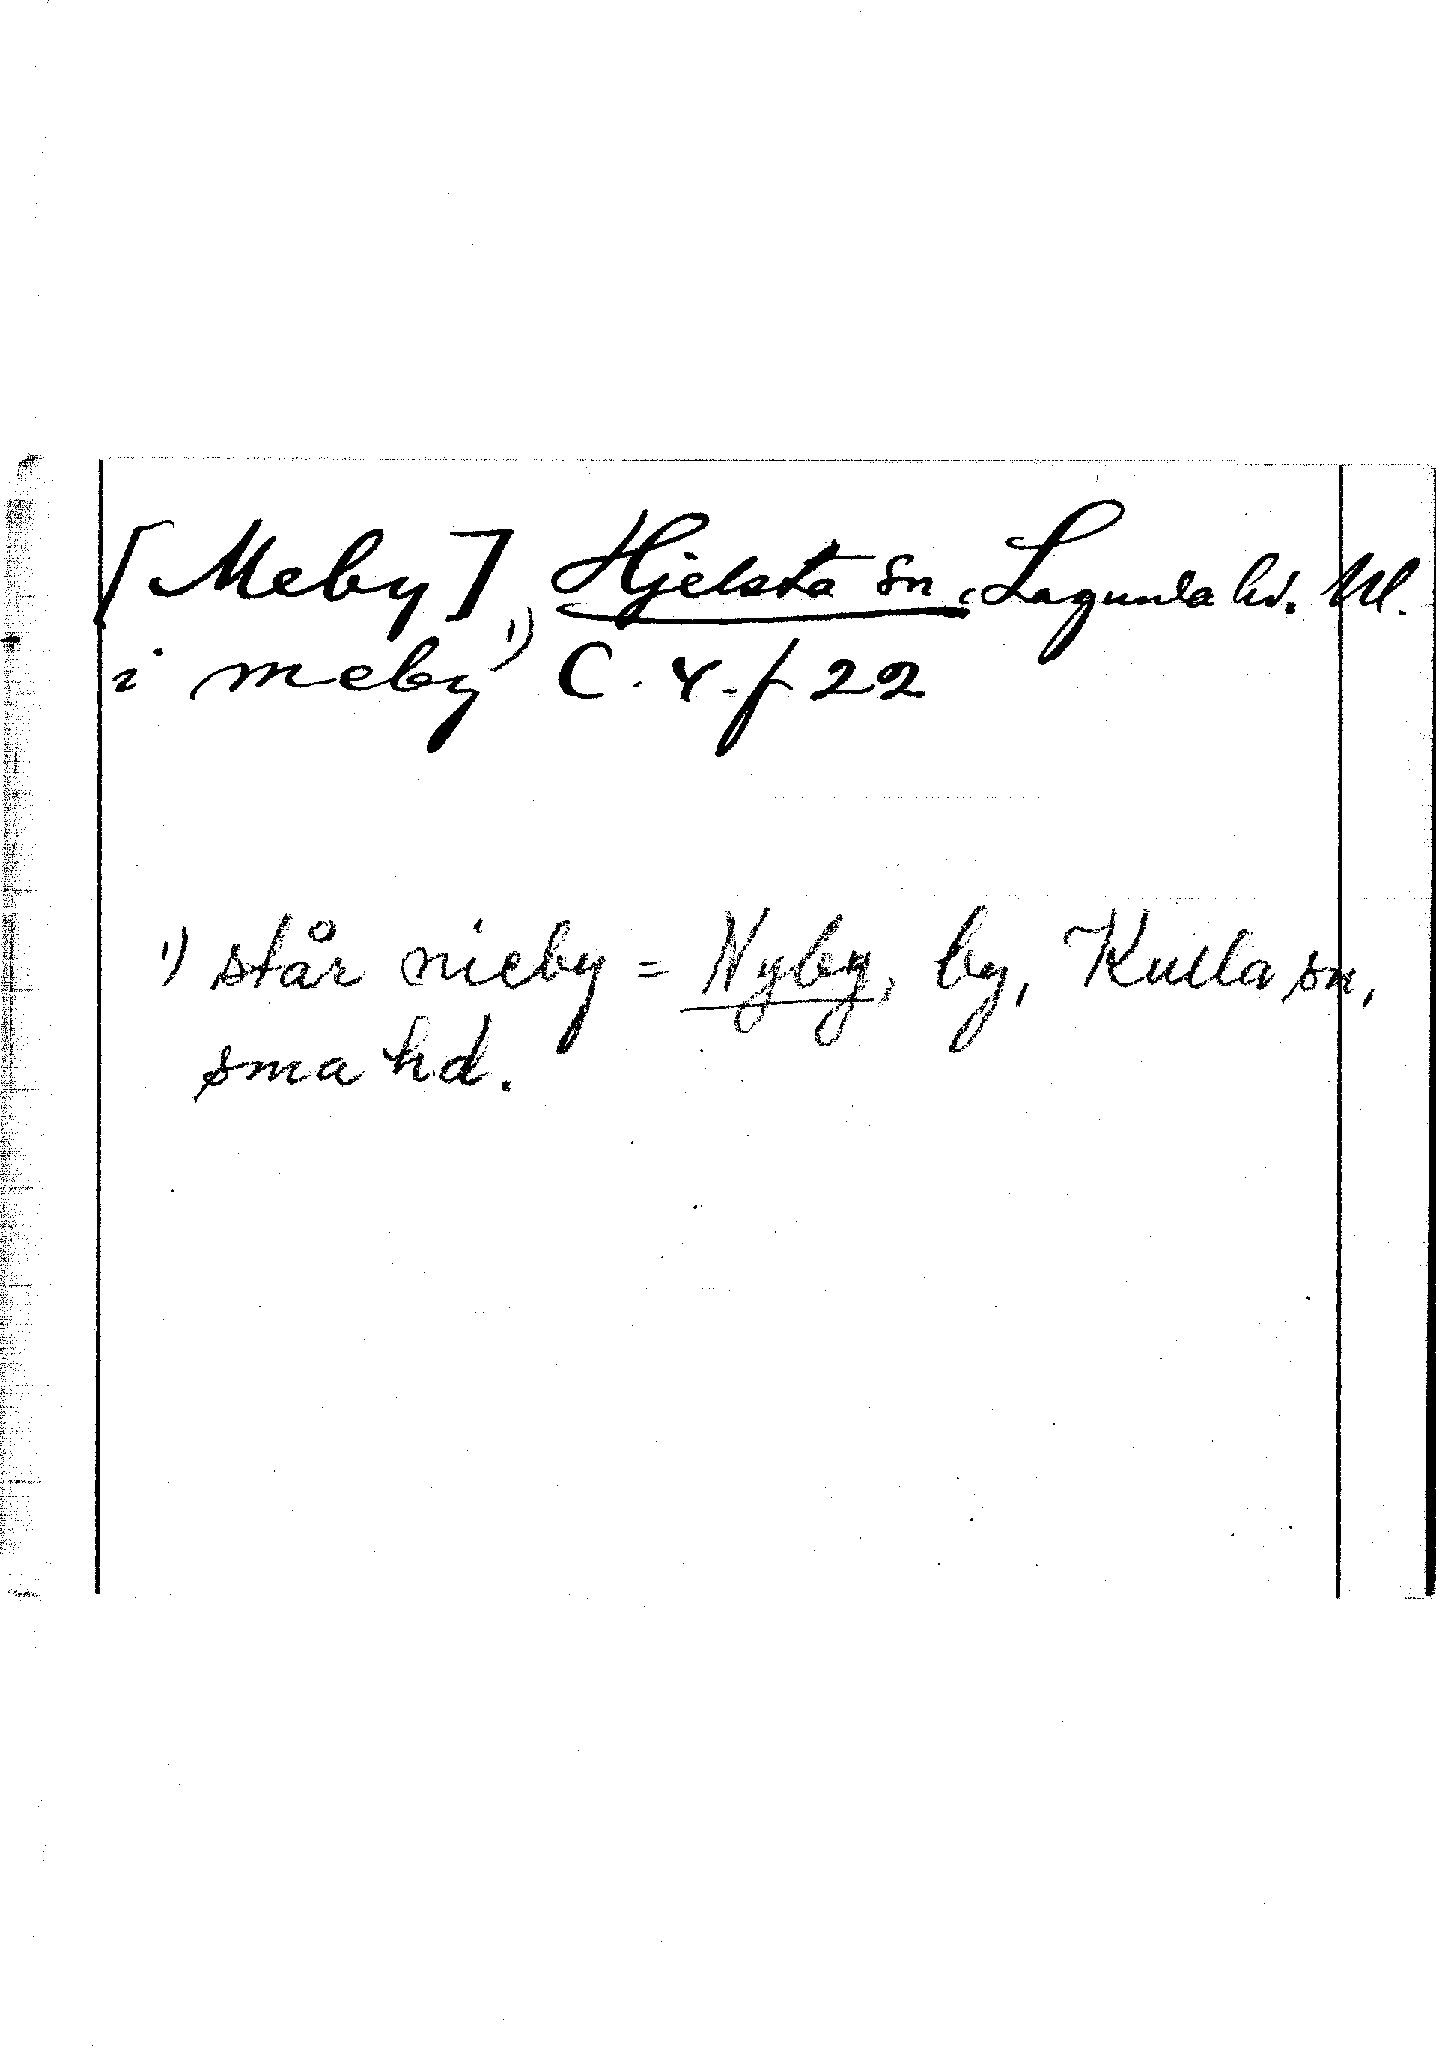 [Meby], Hjelsta sn, Lagunda hd. Upl.
i meby ¹) C. 4. f 22
¹) står nieby = Nyby, by, Kulla sn,
sma hd.